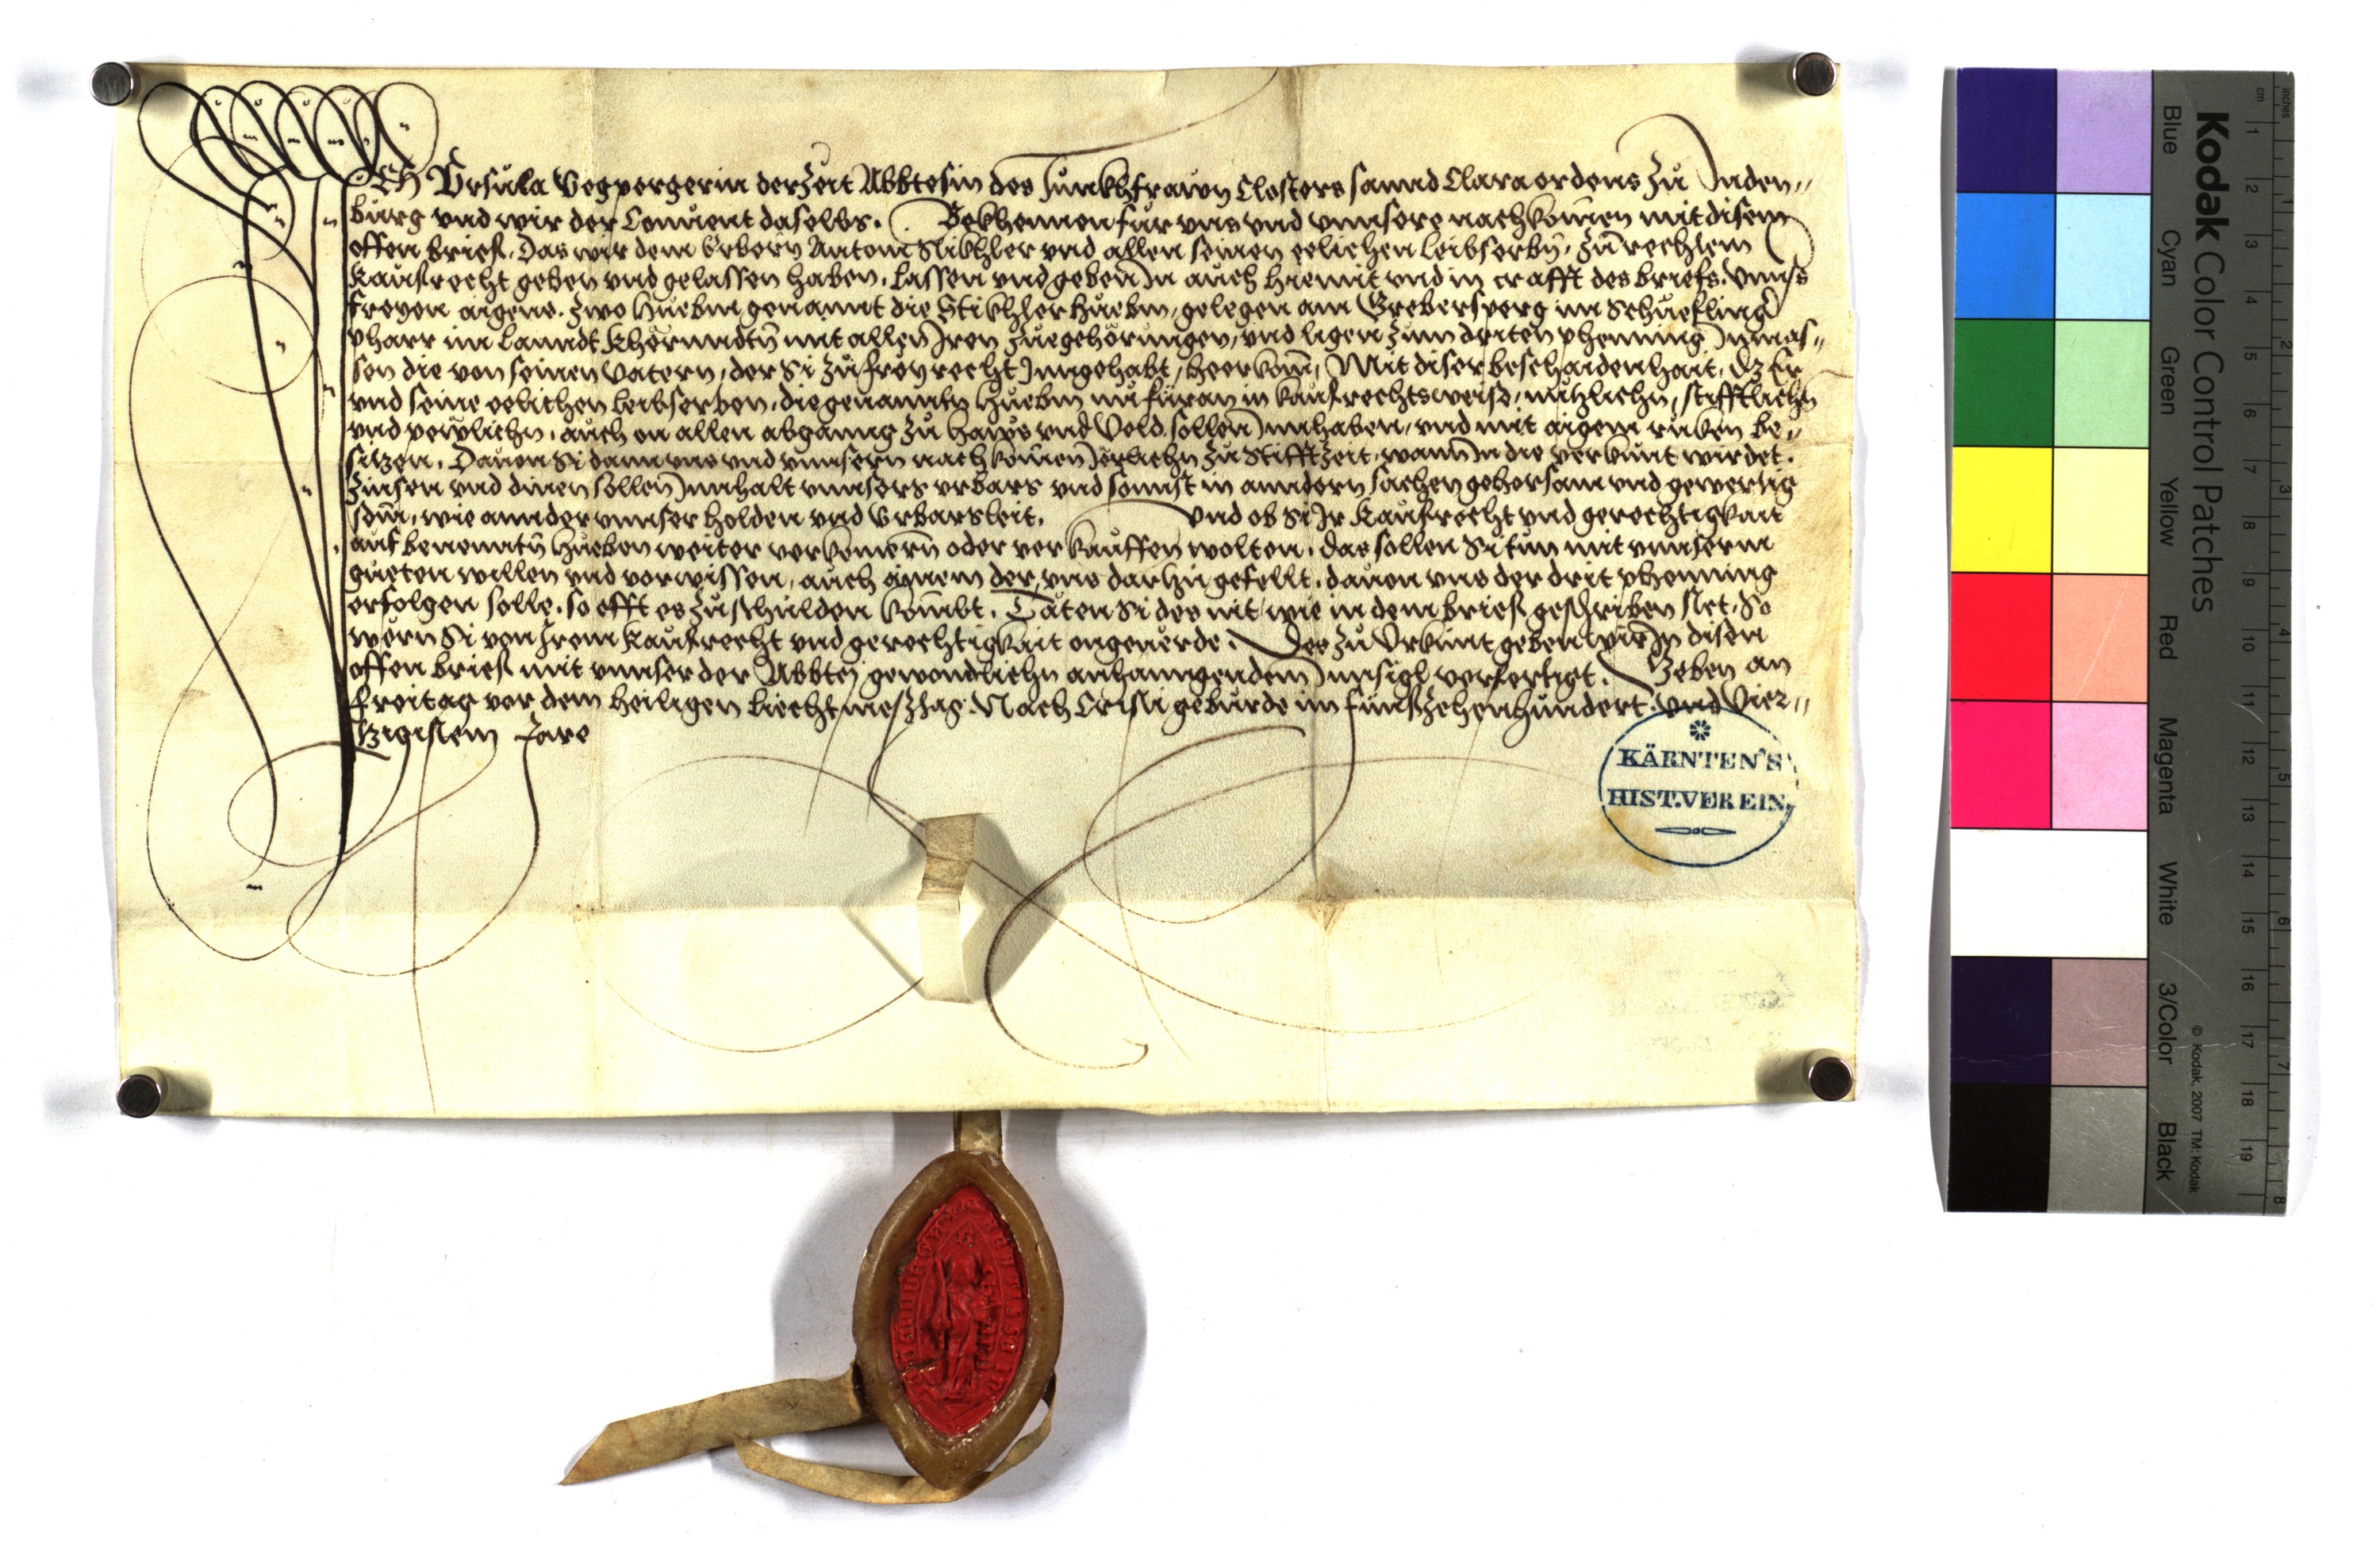 Ich Ursula Vegpergerin der Zeit Abbtesin des Junkhfrawn Closters sannd Clara ordens zu Juden„
burg vnd wir der Conuent daselbs. Bekhennen für vns vnd vnnsere nachkomen mit disem
offen brief. Das wir dem Erbern Antoni Stikhler vnd allen seinen eelichen Leibserbn, zu rechtem
Kaufrecht geben vnd gelassen haben. Lassen vnd geben In auch hiemit vnd in crafft des briefs. Vnns
freyen aigens. zwo Huebm genannt die Stikhler Huebm, gelegen am Grebersperg im Schiefling
pharr im Lanndt Khernndtn mit allen Iren zuegehörungen, vnd ligen zum driten phenning Inmas„
sen die von seinen Vatern, der Si zu freyrecht Inngehabt, heerkom̄, Mit diser beschaidenhait, dz Er
vnd seine eelichen Leibserben, die genanntn Huebm nu füran in kaufrechtsweise, nützlichn, stifftlichn
vnd pewlichn, auch on allen abganng zu Haws vnd Veld sollen Innhaben, vnd mit aigem ruken be„
sitzen. Dauon Si dann vns vnd vnnsern nachkomen Jerlichn zu Stifftzeit, wann In die verkunt wirdet.
Zinsen vnd dinen sollen Innhalt vnnsers vrbars vnd sonnst in anndern sachen gehorsam vnd gewertig
sein, wie annder vnnser Holden vnd Vrbarsleit. Vnd ob Si Ir Kaufrecht vnd gerechtigkait
auf benenntn Hueben weiter verkomern oder verkauffen wolten. das sollen Si tun mit vnnserm
gueten willen vnd vorwissen, auch ainem der vns darzu gefellt. dauon vns der drit phenning
erfolgen solle. so offt es zu schulden kombt. Täten Si des nit wie in dem brief geschriben stet. So
wern Si von Irem Kaufrecht vnd gerechtigkait ongeuerde. Des zu Vrkunt geben wir In disen
offen brief mit vnnser der Abbtey gewondlichn anhanngendem Innsigl verfertigt. Geben an
Freitag vor dem heiligen Liechtmesstag. Nach Cristi geburde im funffzehenhundert. vnd Vier„
tzigistem Jare
KÄRNTEN'S
HIST.VEREIN.
Kodak Color Control Patches
Blue Cyan Green Yellow Red Magenta White 3/Color Black
© Kodak, 2007 TM: Kodak
cm 1 2 3 4 5 6 7 8 9 10 11 12 13 14 15 16 17 18 19
inches 1 2 3 4 5 6 7 8